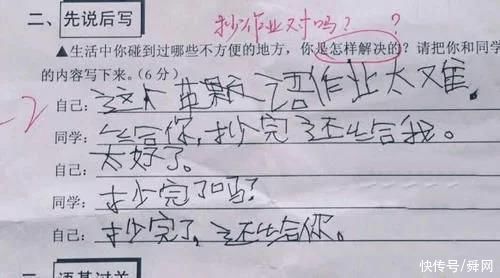 抄作业对吗？？
二、先说后写
▲生活中你碰到过哪些不方便的地方，你是怎样解决的？请把你和同学
的内容写下来。（6分）
-2
自己：这个英颗语作业太难。
同学：给你，抄完还给我。
自己：太好了。
同学：抄完了吗？
自己：抄完了，还给你。
语基过关
快传号/舜网